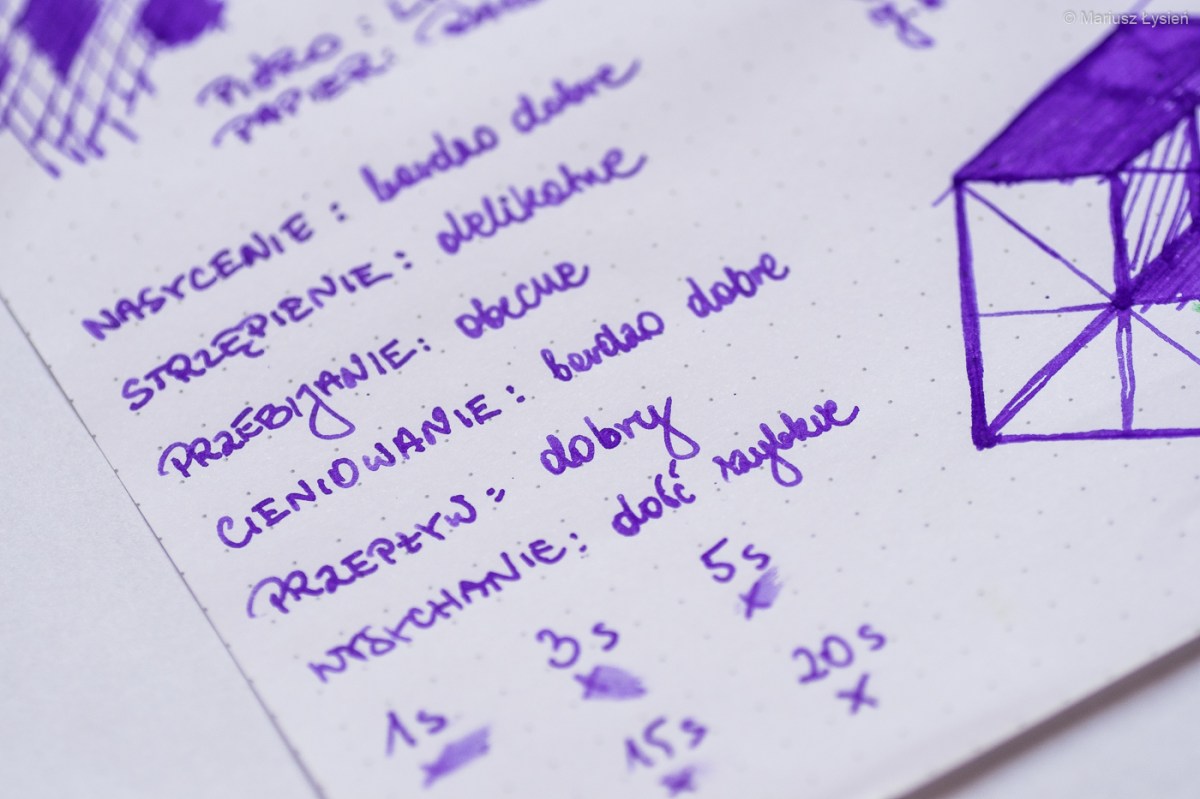 © Mariusz Łysień
PIÓRO :
PAPIER:
NASYCENIE : bardzo dobre
STRZĘPIENIE : delikatne
PRZEBIJANIE: obecne
CIENIOWANIE : bardzo dobre
PRZEPŁYW : dobry
WYSYCHANIE : dość szybkie
1s 3s 5s
15s 20s